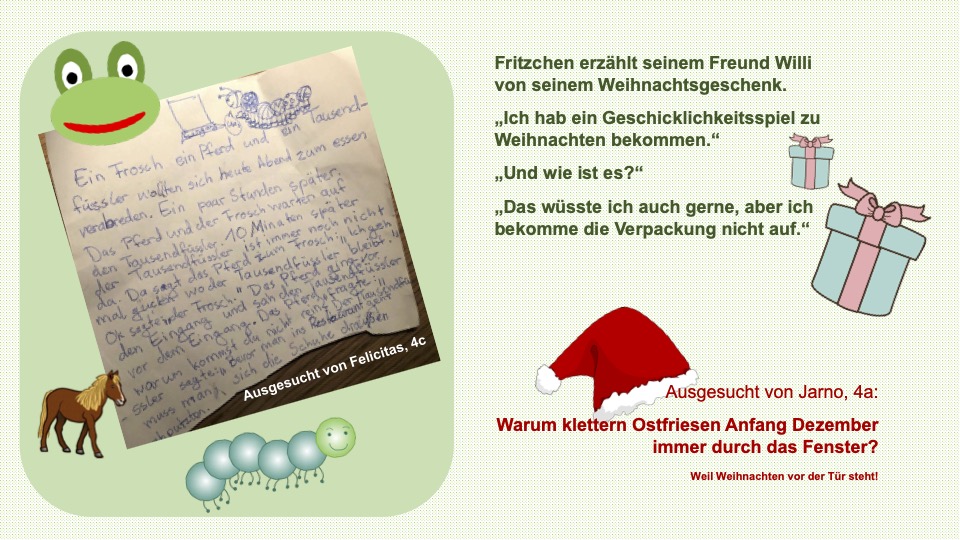 Ein Frosch ein Pferd und ein Tausend-
füssler wollten sich heute Abend zum essen
verabreden. Ein paar Stunden später.
Das Pferd und der Frosch warten auf
den Tausendfüssler. 10 Minuten später
der Tausendfüssler ist immer noch nicht
da. Da sagt das Pferd zum Frosch: "Ich geh
mal gucken wo der Tausendfüssler bleibt."
Ok sagte der Frosch." Das Pferd ging vor
den Eingang und sah den Tausendfüssler
vor dem Eingang. Das Pferd fragte: "
warum kommst du nicht rein? Der Tausendfü
ssler sagte: " Bevor man ins Restaurant geht
muss man sich die Schuhe draußen
Ausgesucht von Felicitas, 4c
Fritzchen erzählt seinem Freund Willi
von seinem Weihnachtsgeschenk.
„Ich hab ein Geschicklichkeitsspiel zu
Weihnachten bekommen.“
„Und wie ist es?“
„Das wüsste ich auch gerne, aber ich
bekomme die Verpackung nicht auf.“
Ausgesucht von Jarno, 4a:
Warum klettern Ostfriesen Anfang Dezember
immer durch das Fenster?
Weil Weihnachten vor der Tür steht!